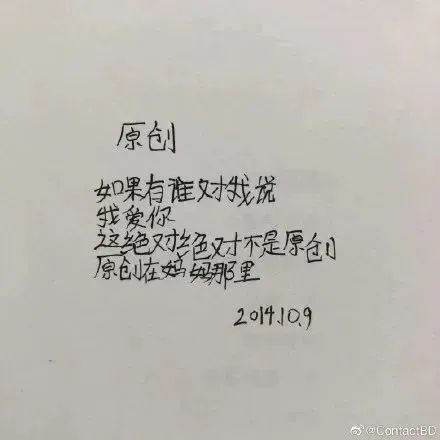 原创
如果有谁对我说
我爱你
这绝对绝对不是原创
原创在妈妈那里
2014.10.9
@ContactBD